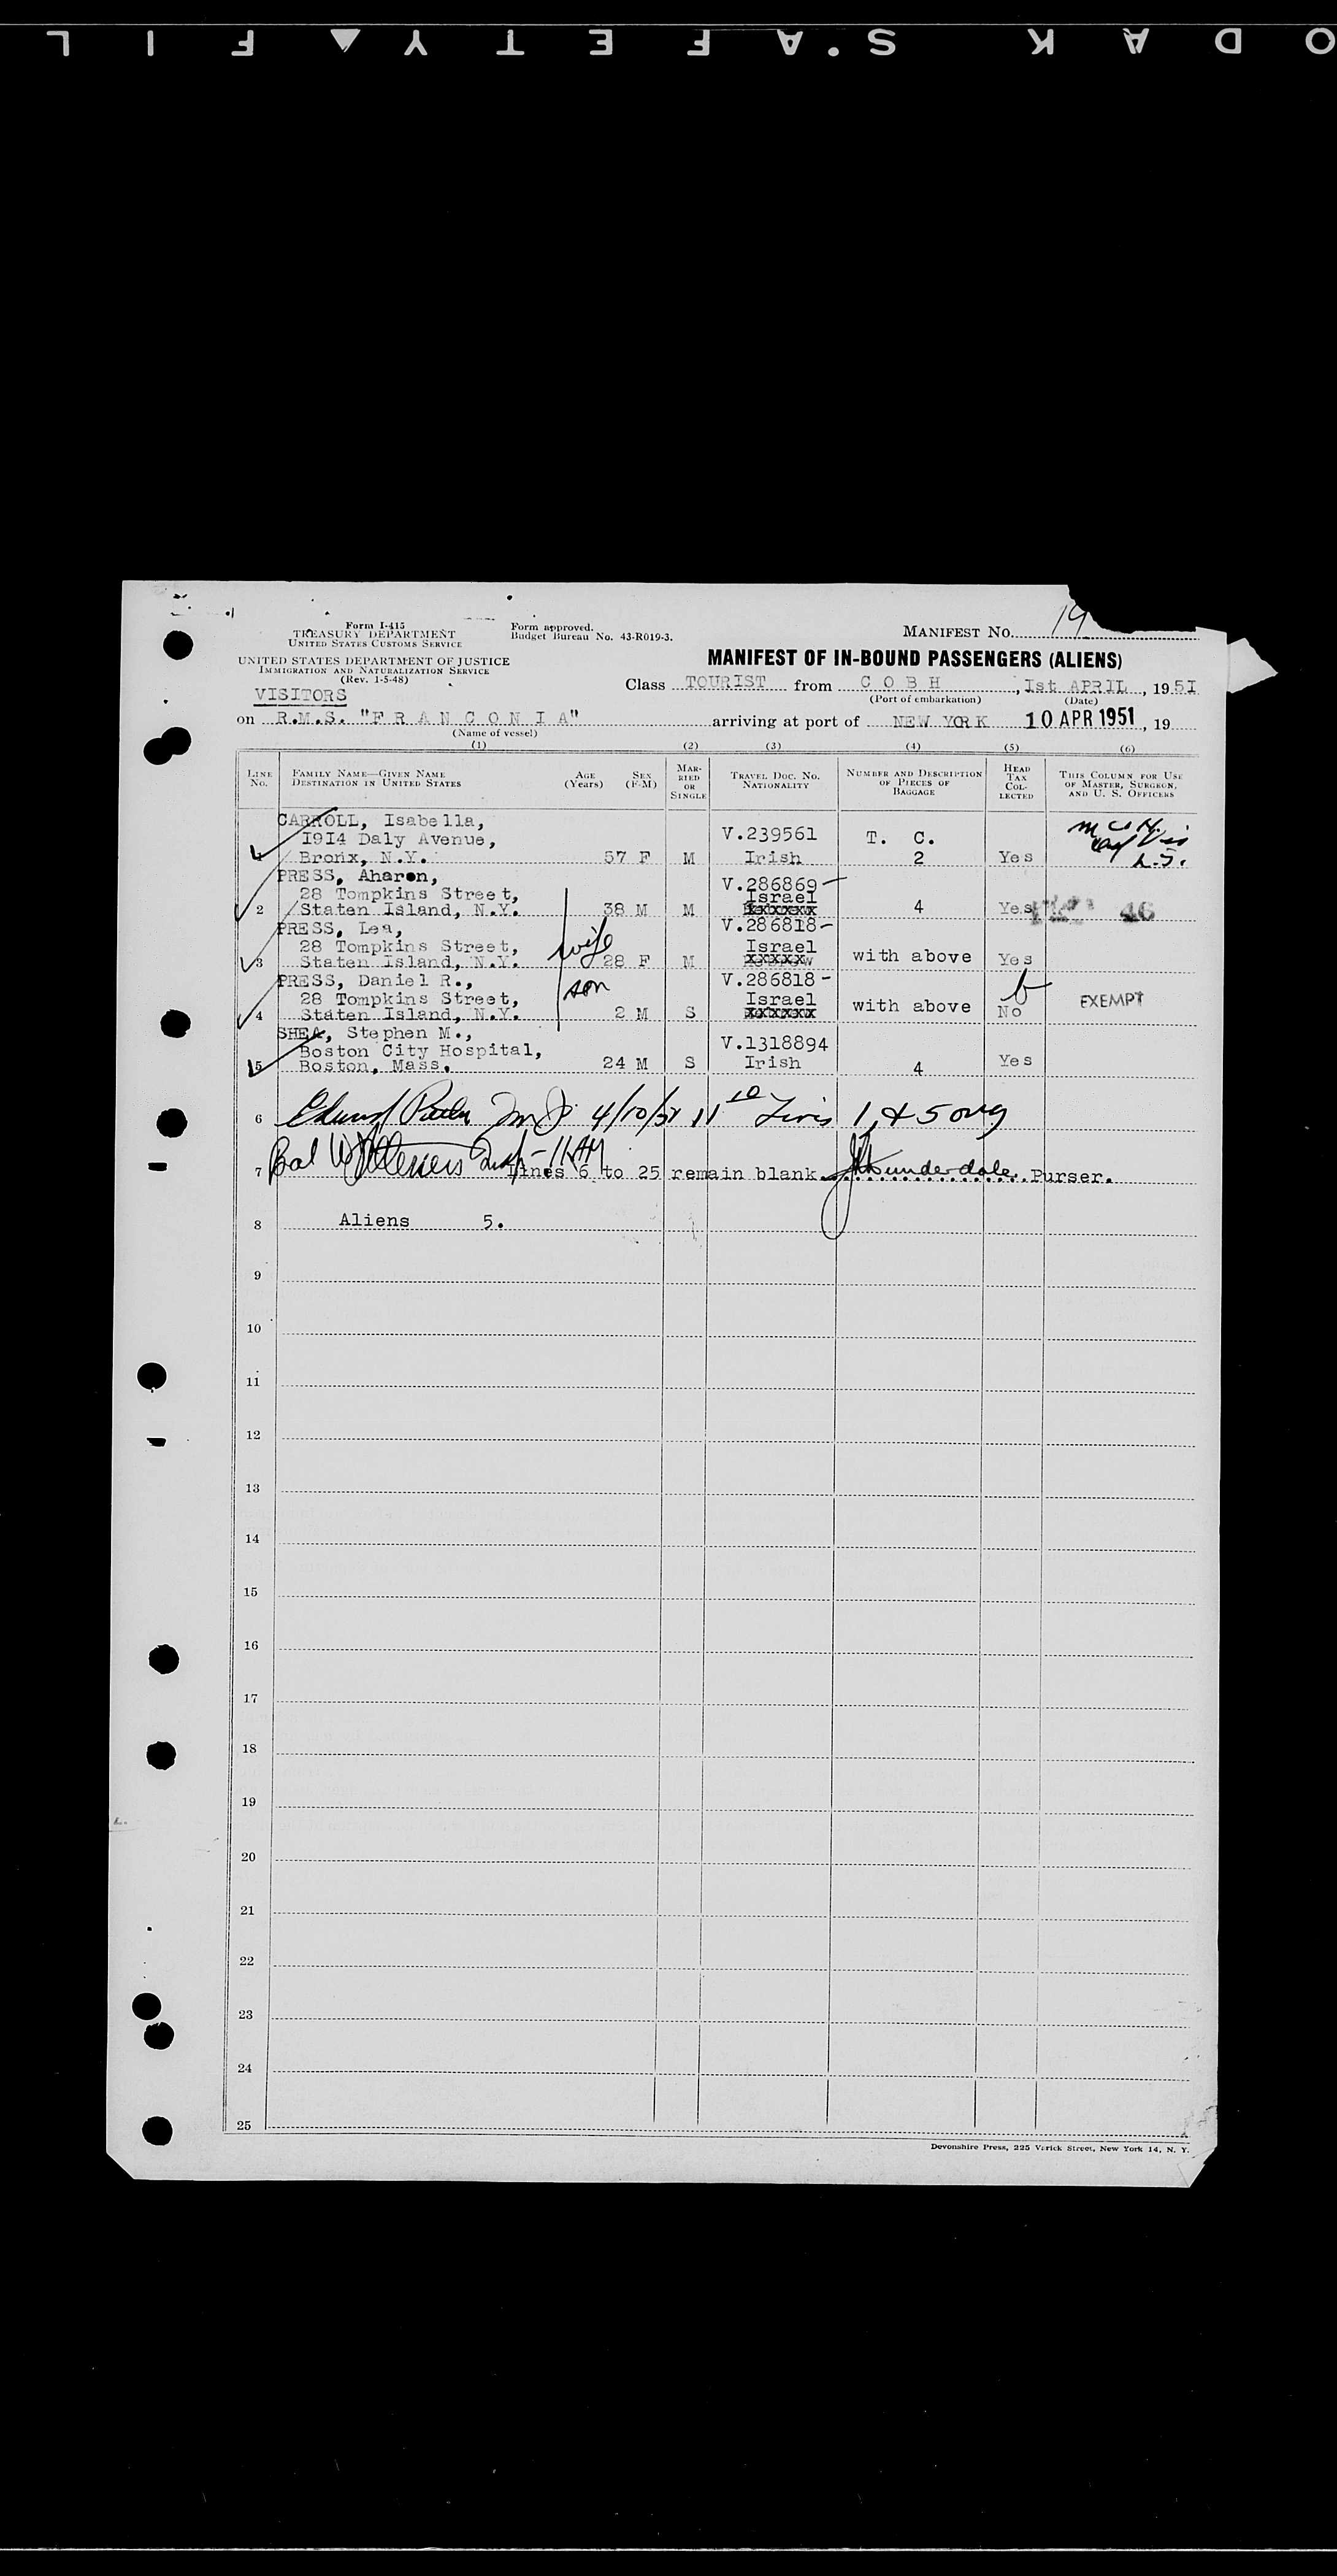 ODAK S.AFETY FIL
19
Form I-415
TREASURY DEPARTMENT
UNITED STATES CUSTOMS SERVICE
Form approved.
Budget Bureau No. 43-R019-3.
MANIFEST NO.
UNITED STATES DEPARTMENT OF JUSTICE
IMMIGRATION AND NATURALIZATION SERVICE
(Rev. 1-5-48)
MANIFEST OF IN-BOUND PASSENGERS (ALIENS)
VISITORS
Class TOURIST from C O B H, 1st APRIL, 1951
(Port of embarkation) (Date)
on R.M.S. "F R A N C O N I A" arriving at port of NEW YORK 10 APR 1951, 19
(Name of vessel)
(1) (2) (3) (4) (5) (6)
LINE NO. FAMILY NAME—GIVEN NAME DESTINATION IN UNITED STATES AGE (Years) SEX (F-M) MARRIED OR SINGLE TRAVEL DOC. NO. NATIONALITY NUMBER AND DESCRIPTION OF PIECES OF BAGGAGE HEAD TAX COLLECTED THIS COLUMN FOR USE OF MASTER, SURGEON, AND U. S. OFFICERS
CARROLL, Isabella,
1914 Daly Avenue, V.239561 T. C.
1 Bronx, N.Y. 57 F M Irish 2 Yes
PRESS, Aharon, V.286869
28 Tompkins Street, Israel
2 Staten Island, N.Y. 38 M M 4 Yes 46
PRESS, Lea, V.286818-
28 Tompkins Street, wife Israel with above
3 Staten Island, N.Y. 28 F M Yes
PRESS, Daniel R., son V.286818-
28 Tompkins Street, Israel with above EXEMPT
4 Staten Island, N.Y. 2 M S No
SHEA, Stephen M.,
Boston City Hospital, V.1318894
5 Boston, Mass. 24 M S Irish 4 Yes
6 4/10/51 1 & 5 only
7 Lines 6 to 25 remain blank Purser.
8 Aliens 5.
9
10
11
12
13
14
15
16
17
18
19
20
21
22
23
24
25
Devonshire Press, 225 Varick Street, New York 14, N. Y.